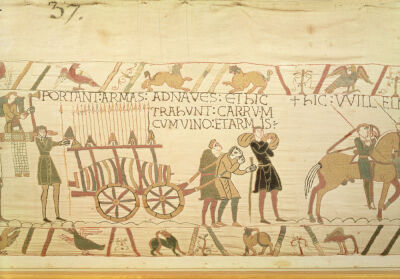 37.
PORTANT: ARMAS: ADNAVES: ET hIC
TRAhUNT: CARRUM
CUMVINO: ETARMIS:
† hIC: WILLELM